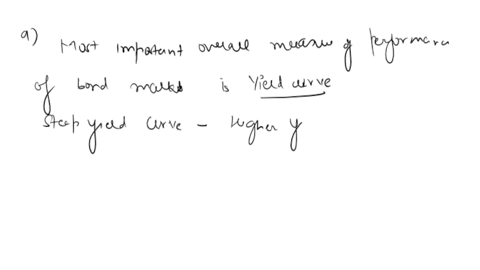 a) Most important overall measure of performance
of bond market is Yield curve
Steep yield curve - Higher y